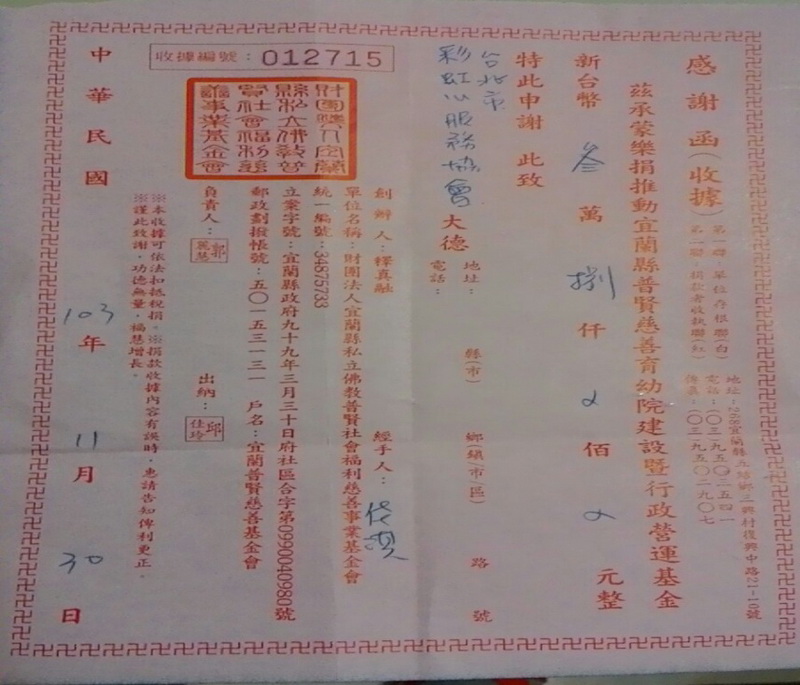 感謝函(收據)
第一聯：單位存根聯(白)
第二聯：捐款者收執聯(紅)
地址：268宜蘭縣五結鄉三興村復興中路21-10號
電話：(〇三)九五〇二五四一
傳真：(〇三)九五〇二九〇七
茲承蒙樂捐推動宜蘭縣普賢慈善育幼院建設暨行政營運基金
新台幣 叁 萬 捌 仟 佰 元整
特此申謝 此致
台北市
彩虹心服務協會 大德
地址： 縣(市) 鄉鎮(市)(區) 路 號
電話：
創辦人：釋真融 經手人：
單位名稱：財團法人宜蘭縣私立佛教普賢社會福利慈善事業基金會
統一編號：34875733
立案字號：宜蘭縣政府九十九年三月三十日府社區合字第0990040980號
郵政劃撥帳號：五〇一五三一三一 戶名：宜蘭普賢慈善基金會
負責人：郭麗慧 出納：邱佳玲
※本收據可依法扣抵稅捐。※捐款收據內容有誤時，惠請告知俾利更正。
※謹此致謝，功德無量，福慧增長。
收據編號：012715
財團法人宜蘭縣私立佛教普賢社會福利慈善事業基金會
中華民國 103 年 11 月 30 日